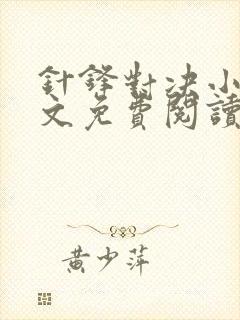 針鋒對決小
文免費閱讀
黃少萍